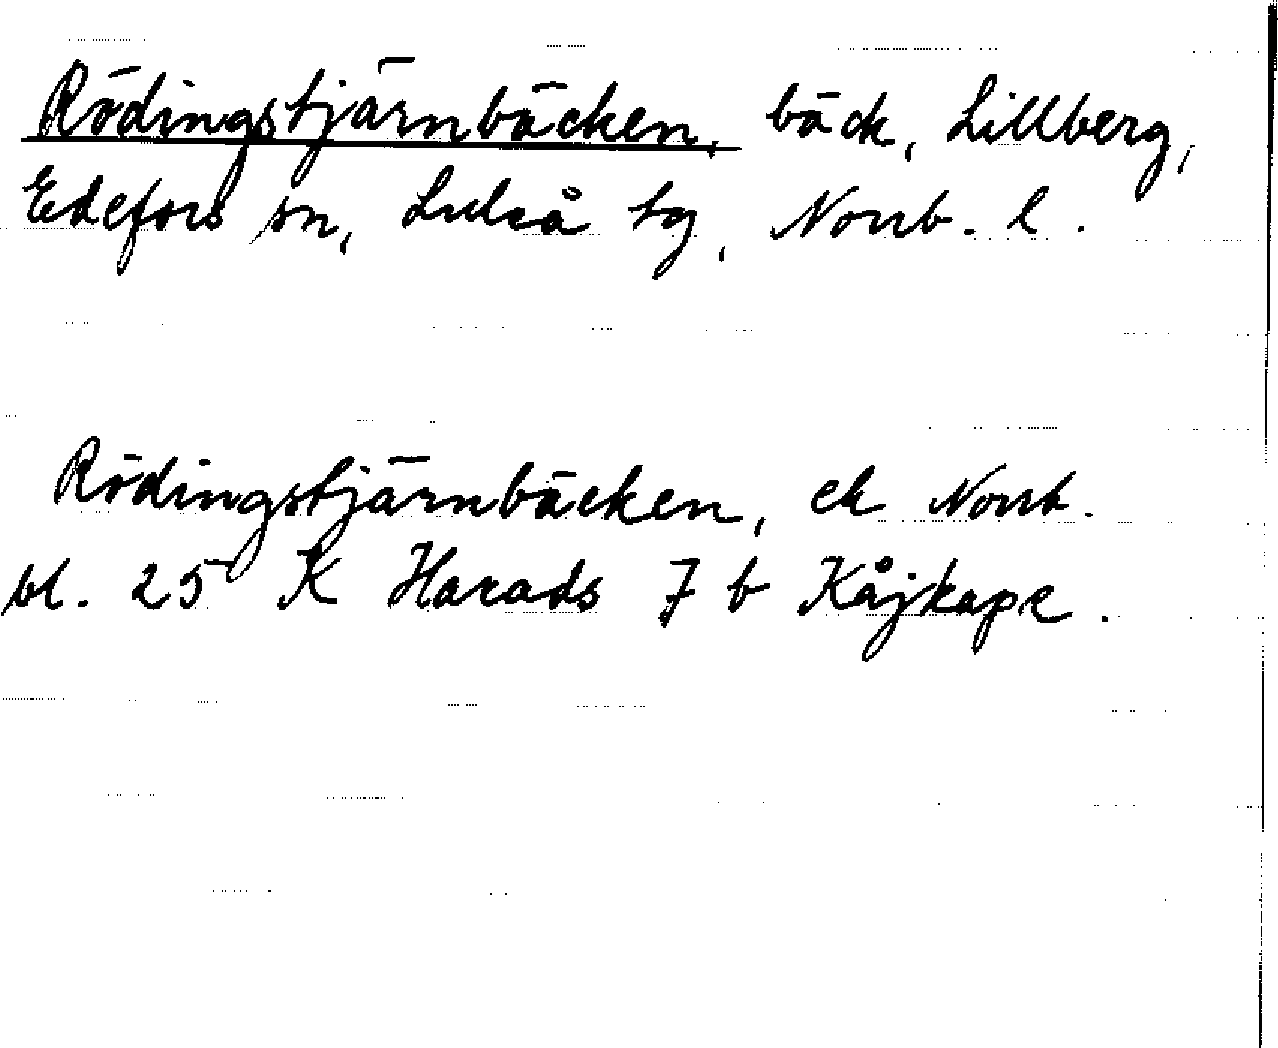 Rödingstjärnbäcken, bäck, Lillberg,
Edefors sn, Luleå tg, Norrb. l.
Rödingstjärnbäcken, ek Norrb.
bl. 25 K Harads 7 b Kåjkape.